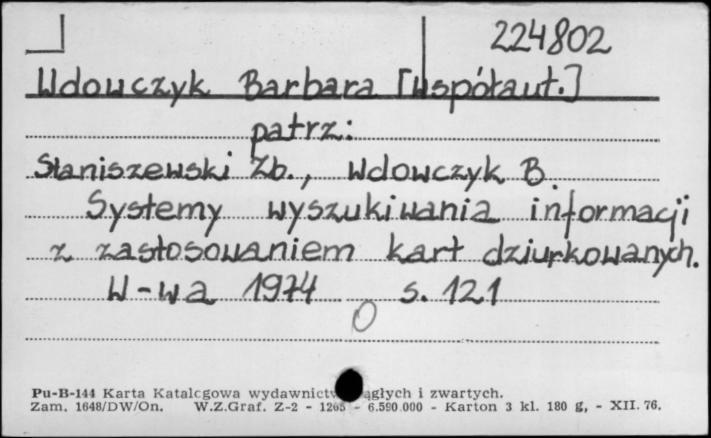 224802
Wdowczyk Barbara [współaut.]
patrz:
Staniszewski Zb., Wdowczyk B.
Systemy wyszukiwania informacji
z zastosowaniem kart dziurkowanych.
W-wa 1974 s. 121
Pu-B-144 Karta Katalogowa wydawnictw ągłych i zwartych.
Zam. 1648/DW/On. W.Z.Graf. Z-2 - 1265 - 6.590.000 - Karton 3 kl. 180 g, - XII. 76.